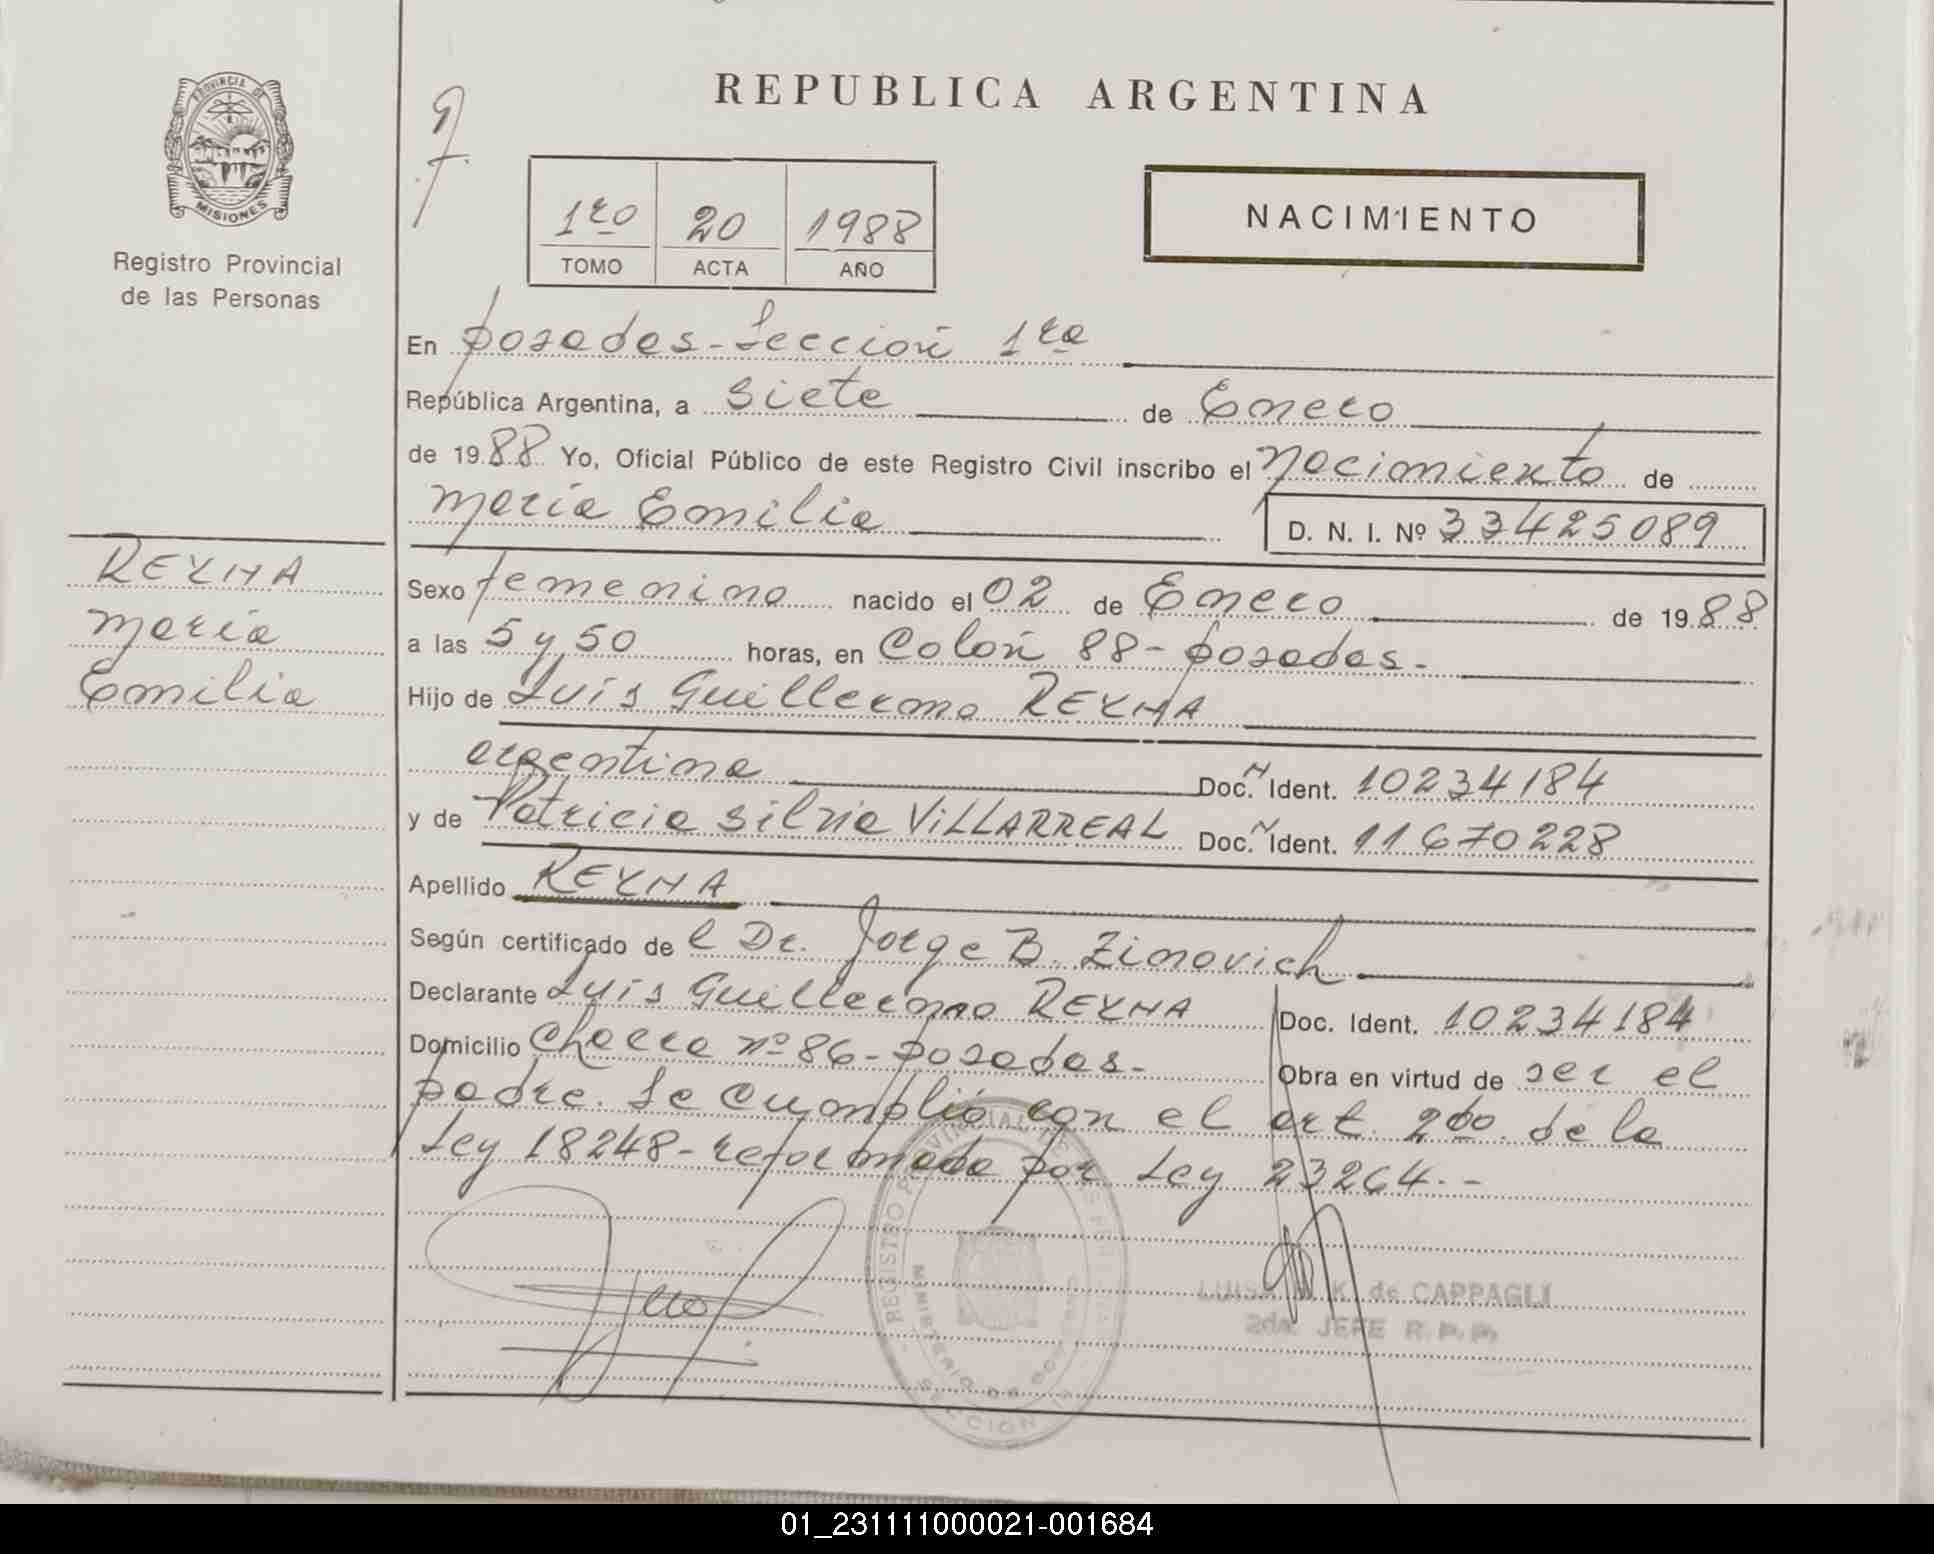 REPUBLICA ARGENTINA
PROVINCIA DE
MISIONES
Registro Provincial
de las Personas
1ro 20 1988
TOMO ACTA AÑO
NACIMIENTO
En posadas-Sección 1ra
República Argentina, a siete de Enero
de 1988 Yo, Oficial Público de este Registro Civil inscribo el Nacimiento de
María Emilia
D. N. I. Nº 33425089
REYNA
María
Emilia
Sexo femenino nacido el 02 de Enero de 1988
a las 5 y 50 horas, en Colón 88-posadas-
Hijo de Luis Guillermo REYNA
argentina Doc. N Ident. 10234184
y de Patricia Silvia VILLARREAL Doc. N Ident. 11670228
Apellido REYNA
Según certificado de l Dr. Jorge B. Zimovich
Declarante Luis Guillermo REYNA Doc. Ident. 10234184
Domicilio Chacra nº 86-posadas- Obra en virtud de ser el
padre. Se cumplió con el art. 2do. de la
Ley 18248-reformada por Ley 23264.--
REGISTRO PROVINCIAL DE
MINISTERIO DE
SECCION
LUISA K. de CAPPAGLI
2da. JEFE R. P. P.
01_231111000021-001684